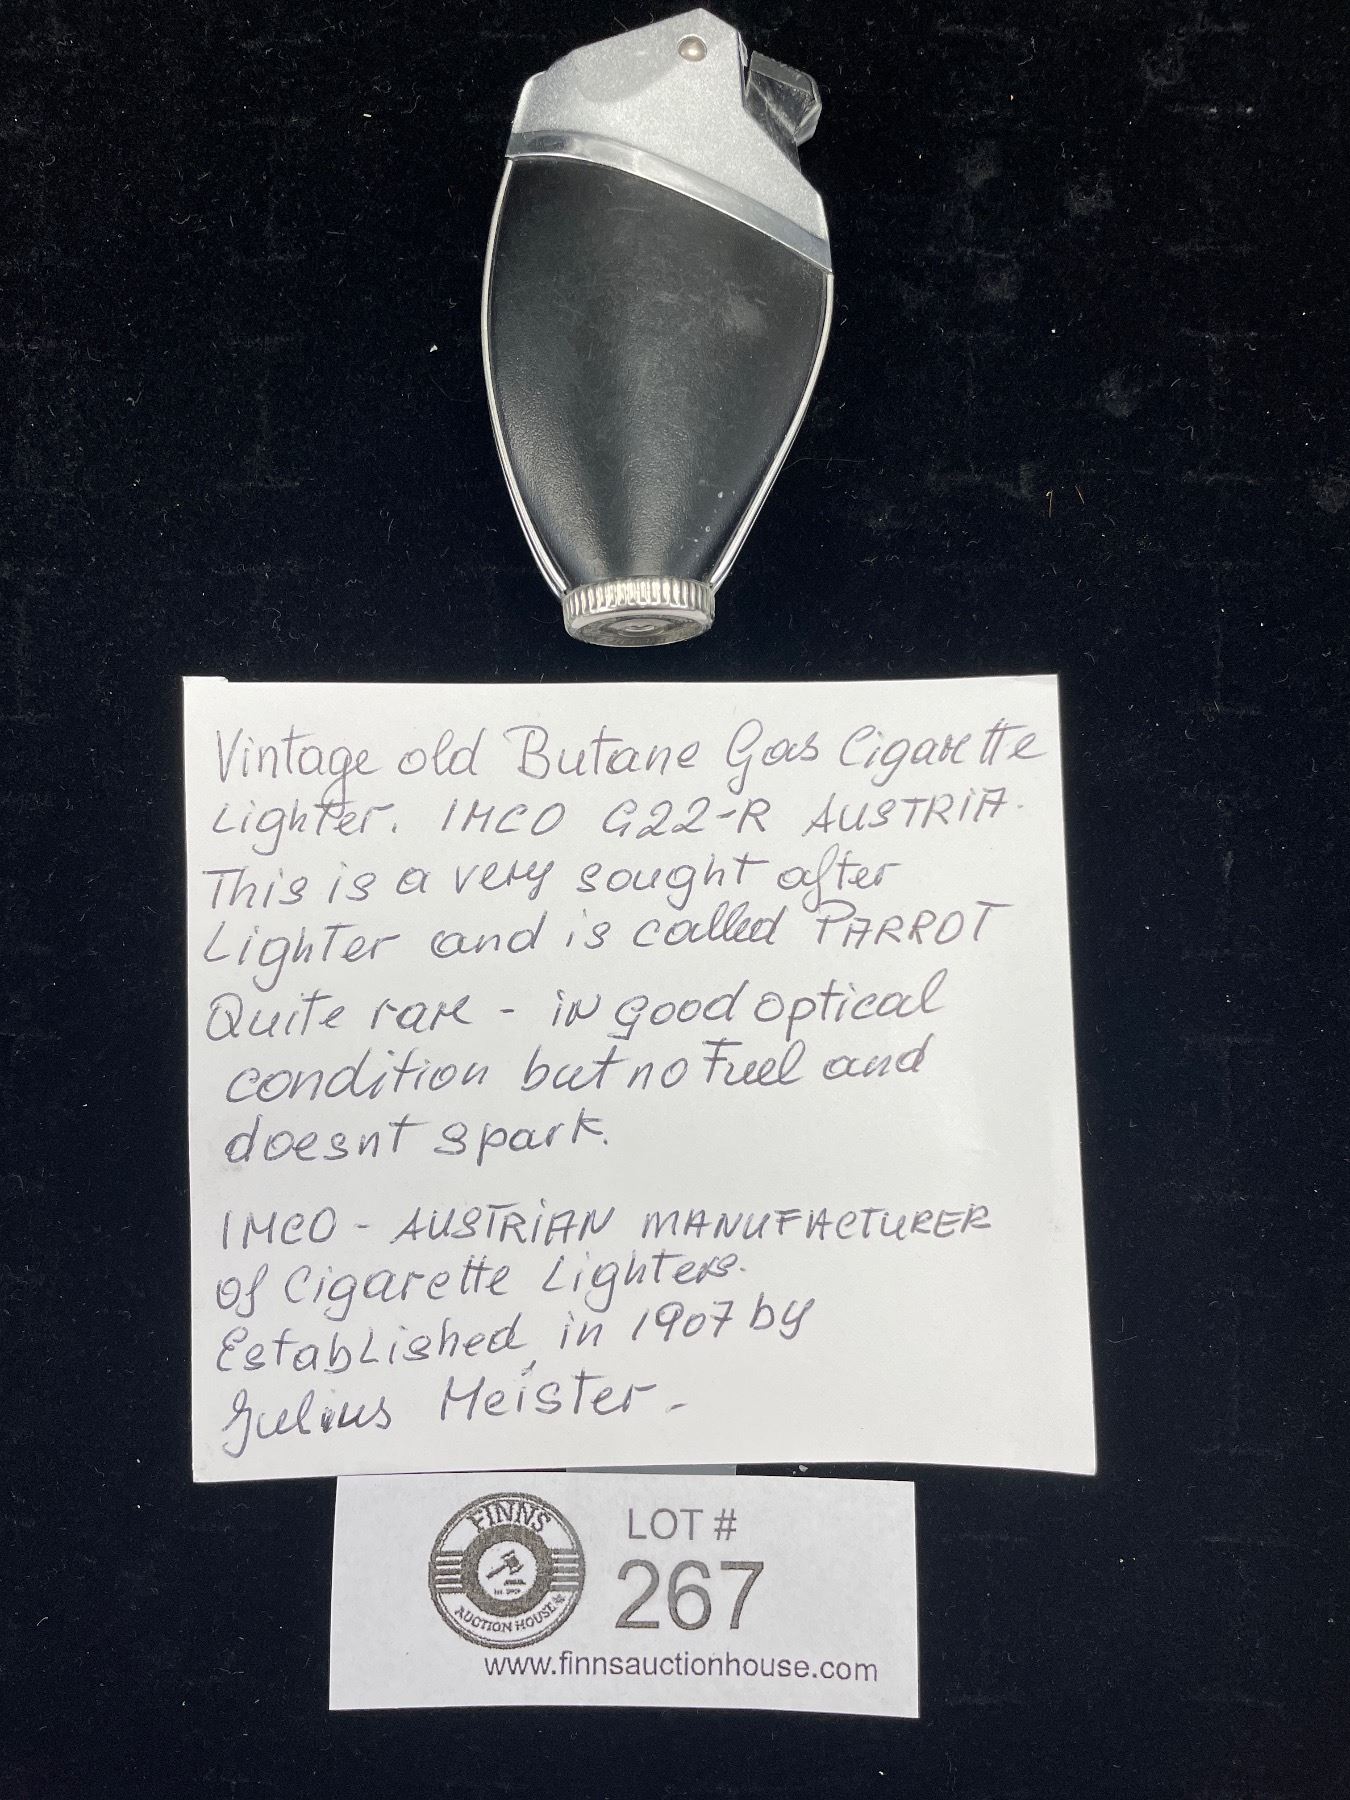 Vintage old Butane Gas Cigarette
Lighter. IMCO G22-R AUSTRIA.
This is a very sought after
Lighter and is called PARROT
Quite rare - in good optical
condition but no Fuel and
doesnt spark.
IMCO - AUSTRIAN MANUFACTURER
of Cigarette Lighters.
Established in 1907 by
Julius Meister -
FINNS
AUCTION HOUSE
LOT #
267
www.finnsauctionhouse.com